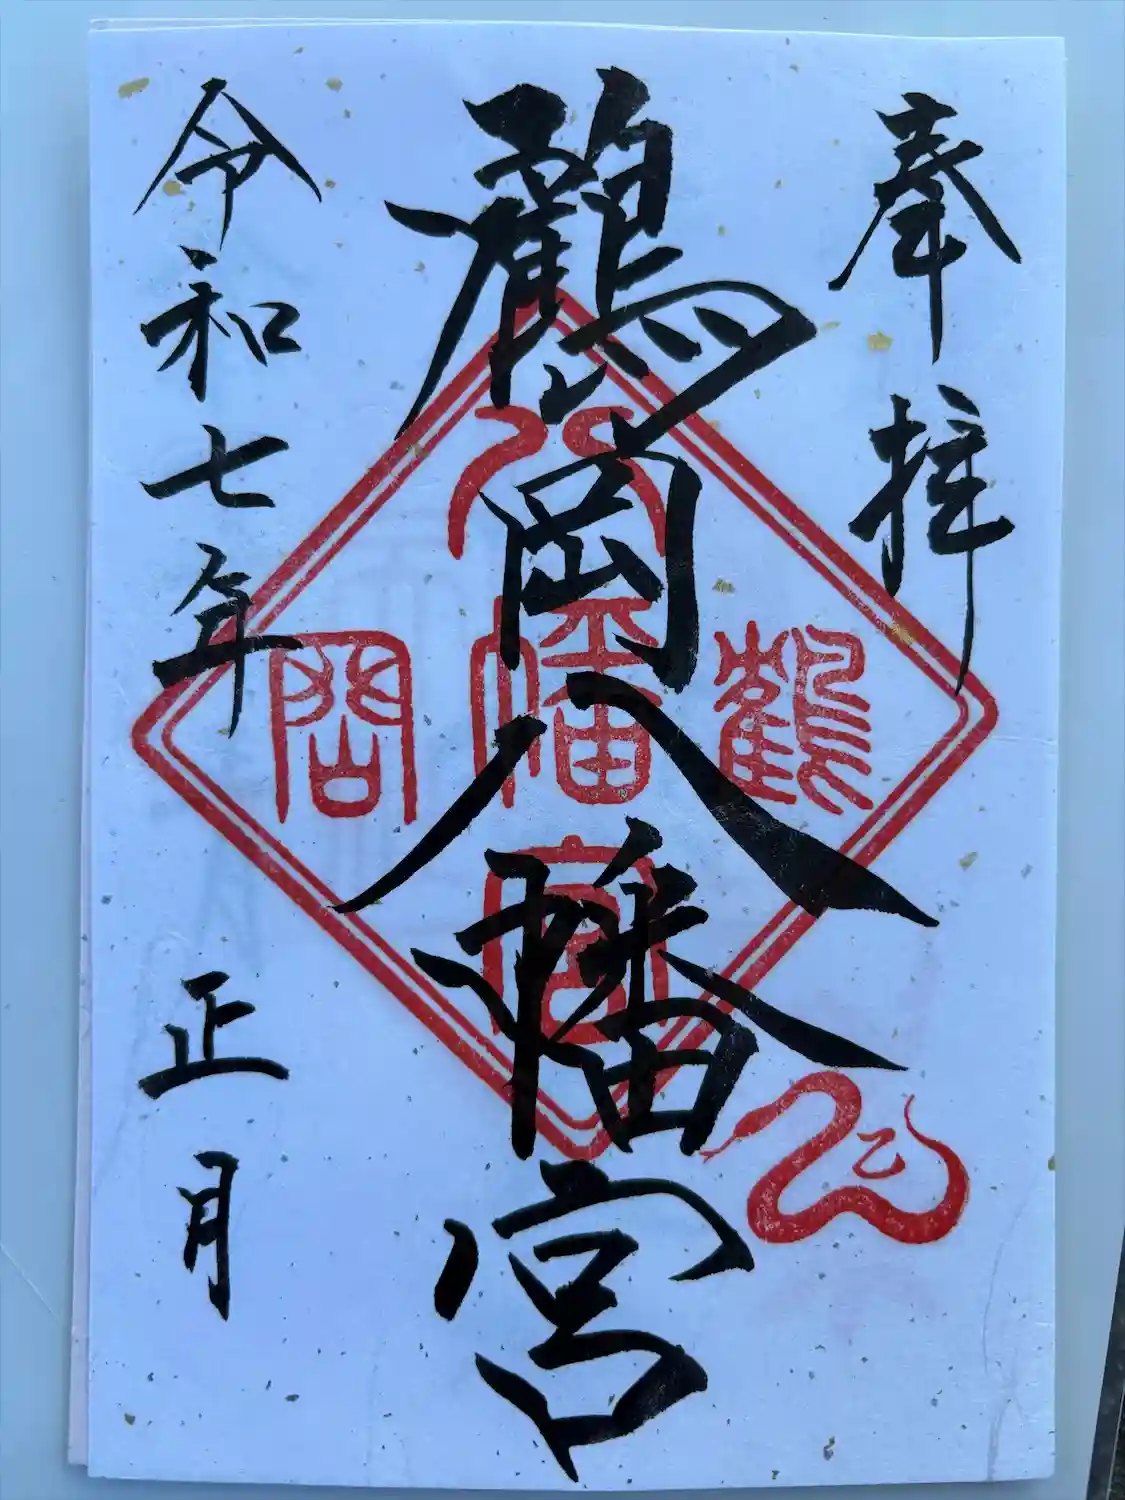 奉拝
鶴岡八幡宮
令和七年 正月
八
鶴 幡 岡
宮
巳